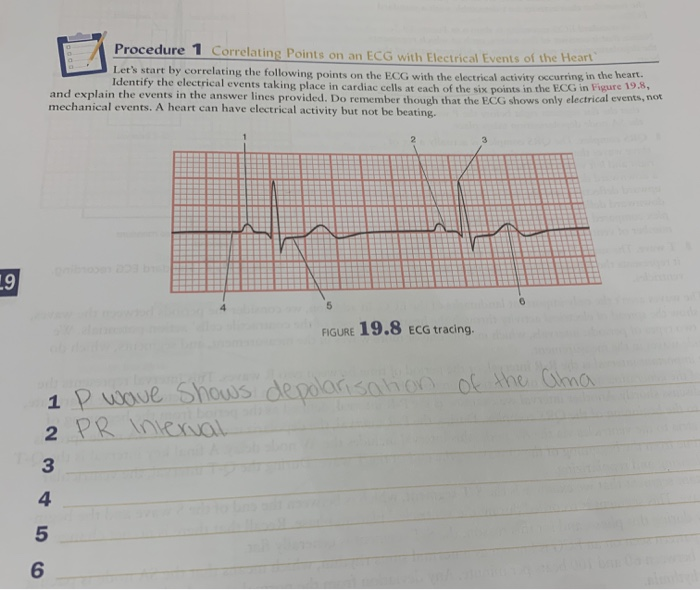 Procedure 1 Correlating Points on an ECG with Electrical Events of the Heart
Let's start by correlating the following points on the ECG with the electrical activity occurring in the heart.
Identify the electrical events taking place in cardiac cells at each of the six points in the ECG in Figure 19.8,
and explain the events in the answer lines provided. Do remember though that the ECG shows only electrical events, not
mechanical events. A heart can have electrical activity but not be beating.
1 2 3
4 5 6
19
FIGURE 19.8 ECG tracing.
1 P wave shows depolarisation of the
2 PR Interval
3
4
5
6